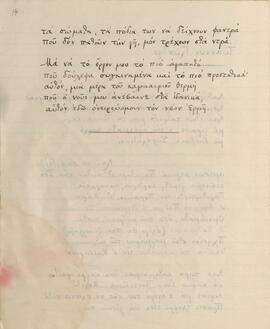 τα σώματα, τα πόδια των να δείχνουν φανερά
που δεν πατούν την γη, μόν τρέχουν στα νερά.
Μα να το έργον μου το πιο αγαπητό
που δούλεψα συγκινημένα και το πιο προσεκτικά·
αυτόν, μια μέρα του καλοκαιριού θερμή
που ο νους μου ανέβαινε στα ιδανικά,
αυτόν εδώ ονειρευόμουν τον νέον Ερμή.